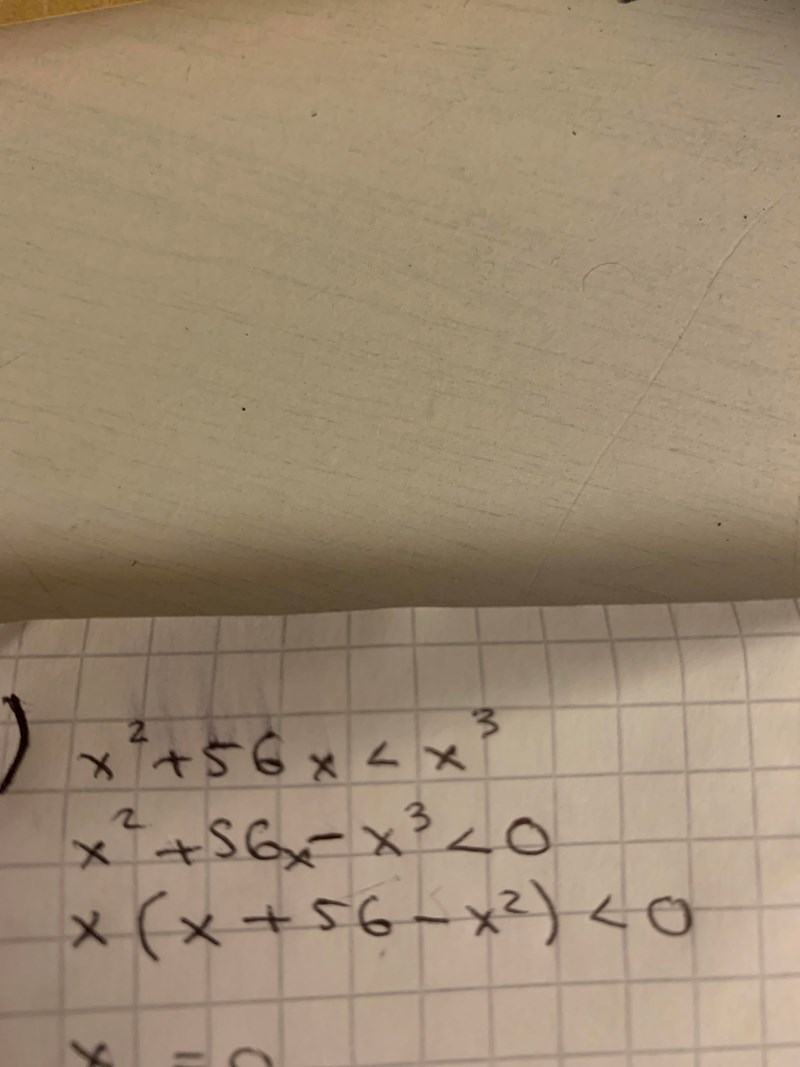 ) x² + 56x < x³
x² + 56x - x³ < 0
x (x + 56 - x²) < 0
x = 0